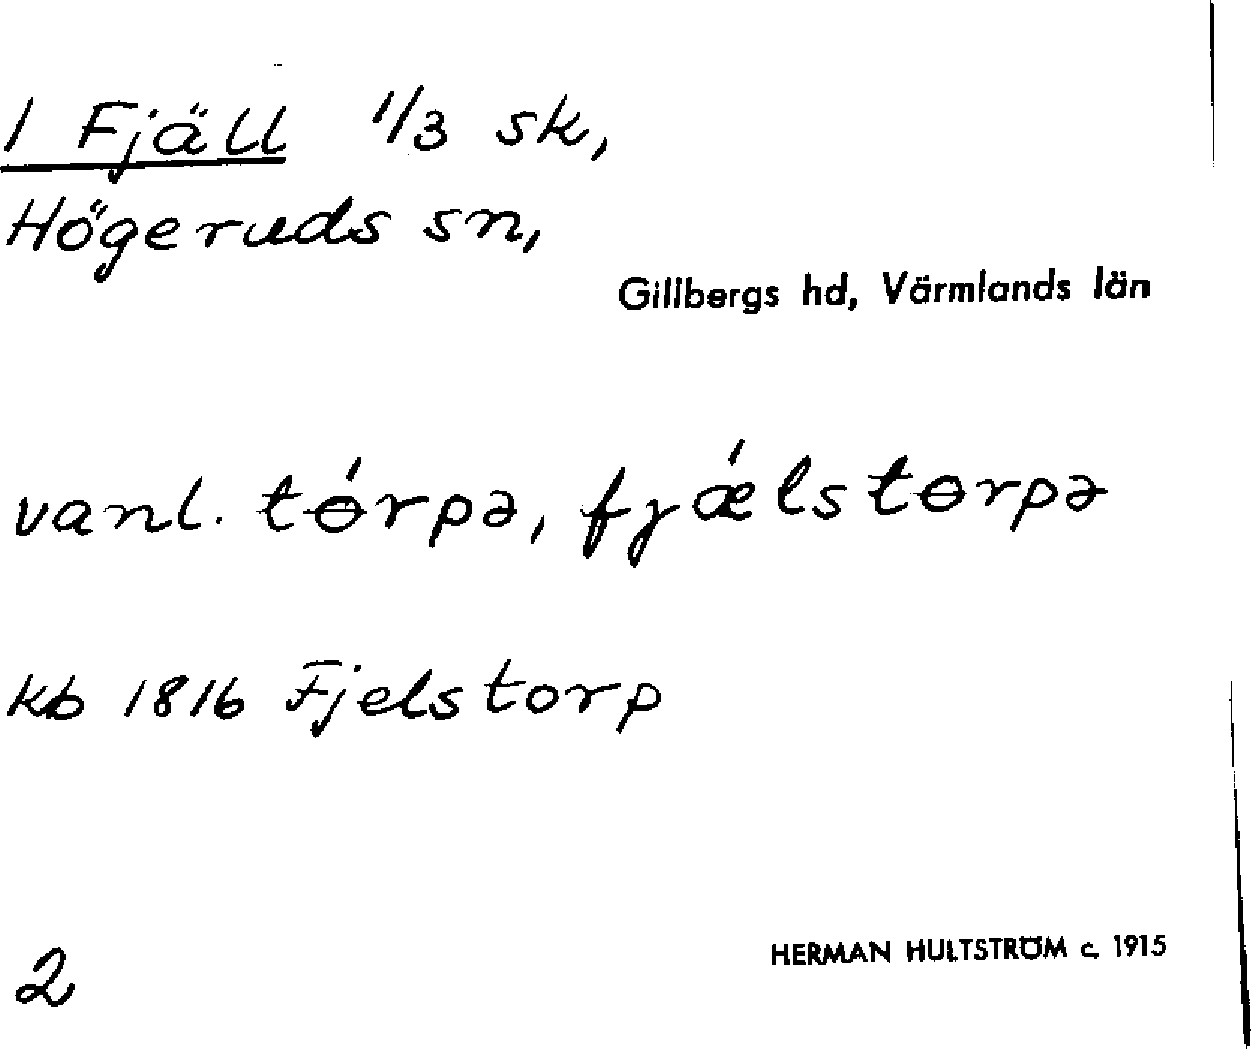 1 Fjäll 1/3 sk,
Högeruds sn,
Gillbergs hd, Värmlands län
vanl. tɵ́rpə, fjǽlstɵrpə
kb 1816 Fjelstorp
2
HERMAN HULTSTRÖM c. 1915